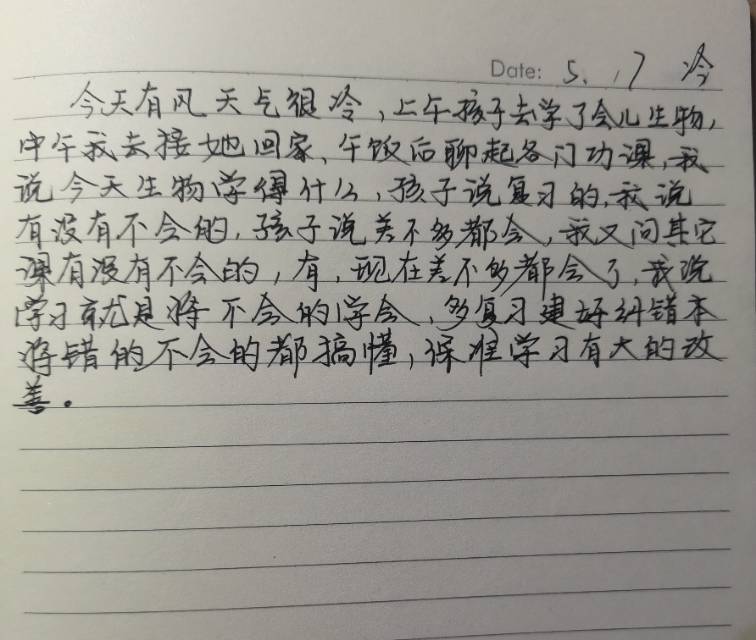 Date: 5.17 冷
今天有风天气很冷，上午孩子去学了会儿生物，
中午我去接她回家、午饭后聊起各门功课，我
说今天生物学得什么，孩子说复习的，我说
有没有不会的，孩子说差不多都会，我又问其它
课有没有不会的，有，现在差不多都会了，我说
学习就是将不会的学会，多复习建好纠错本
将错的不会的都搞懂，保准学习有大的改
善。